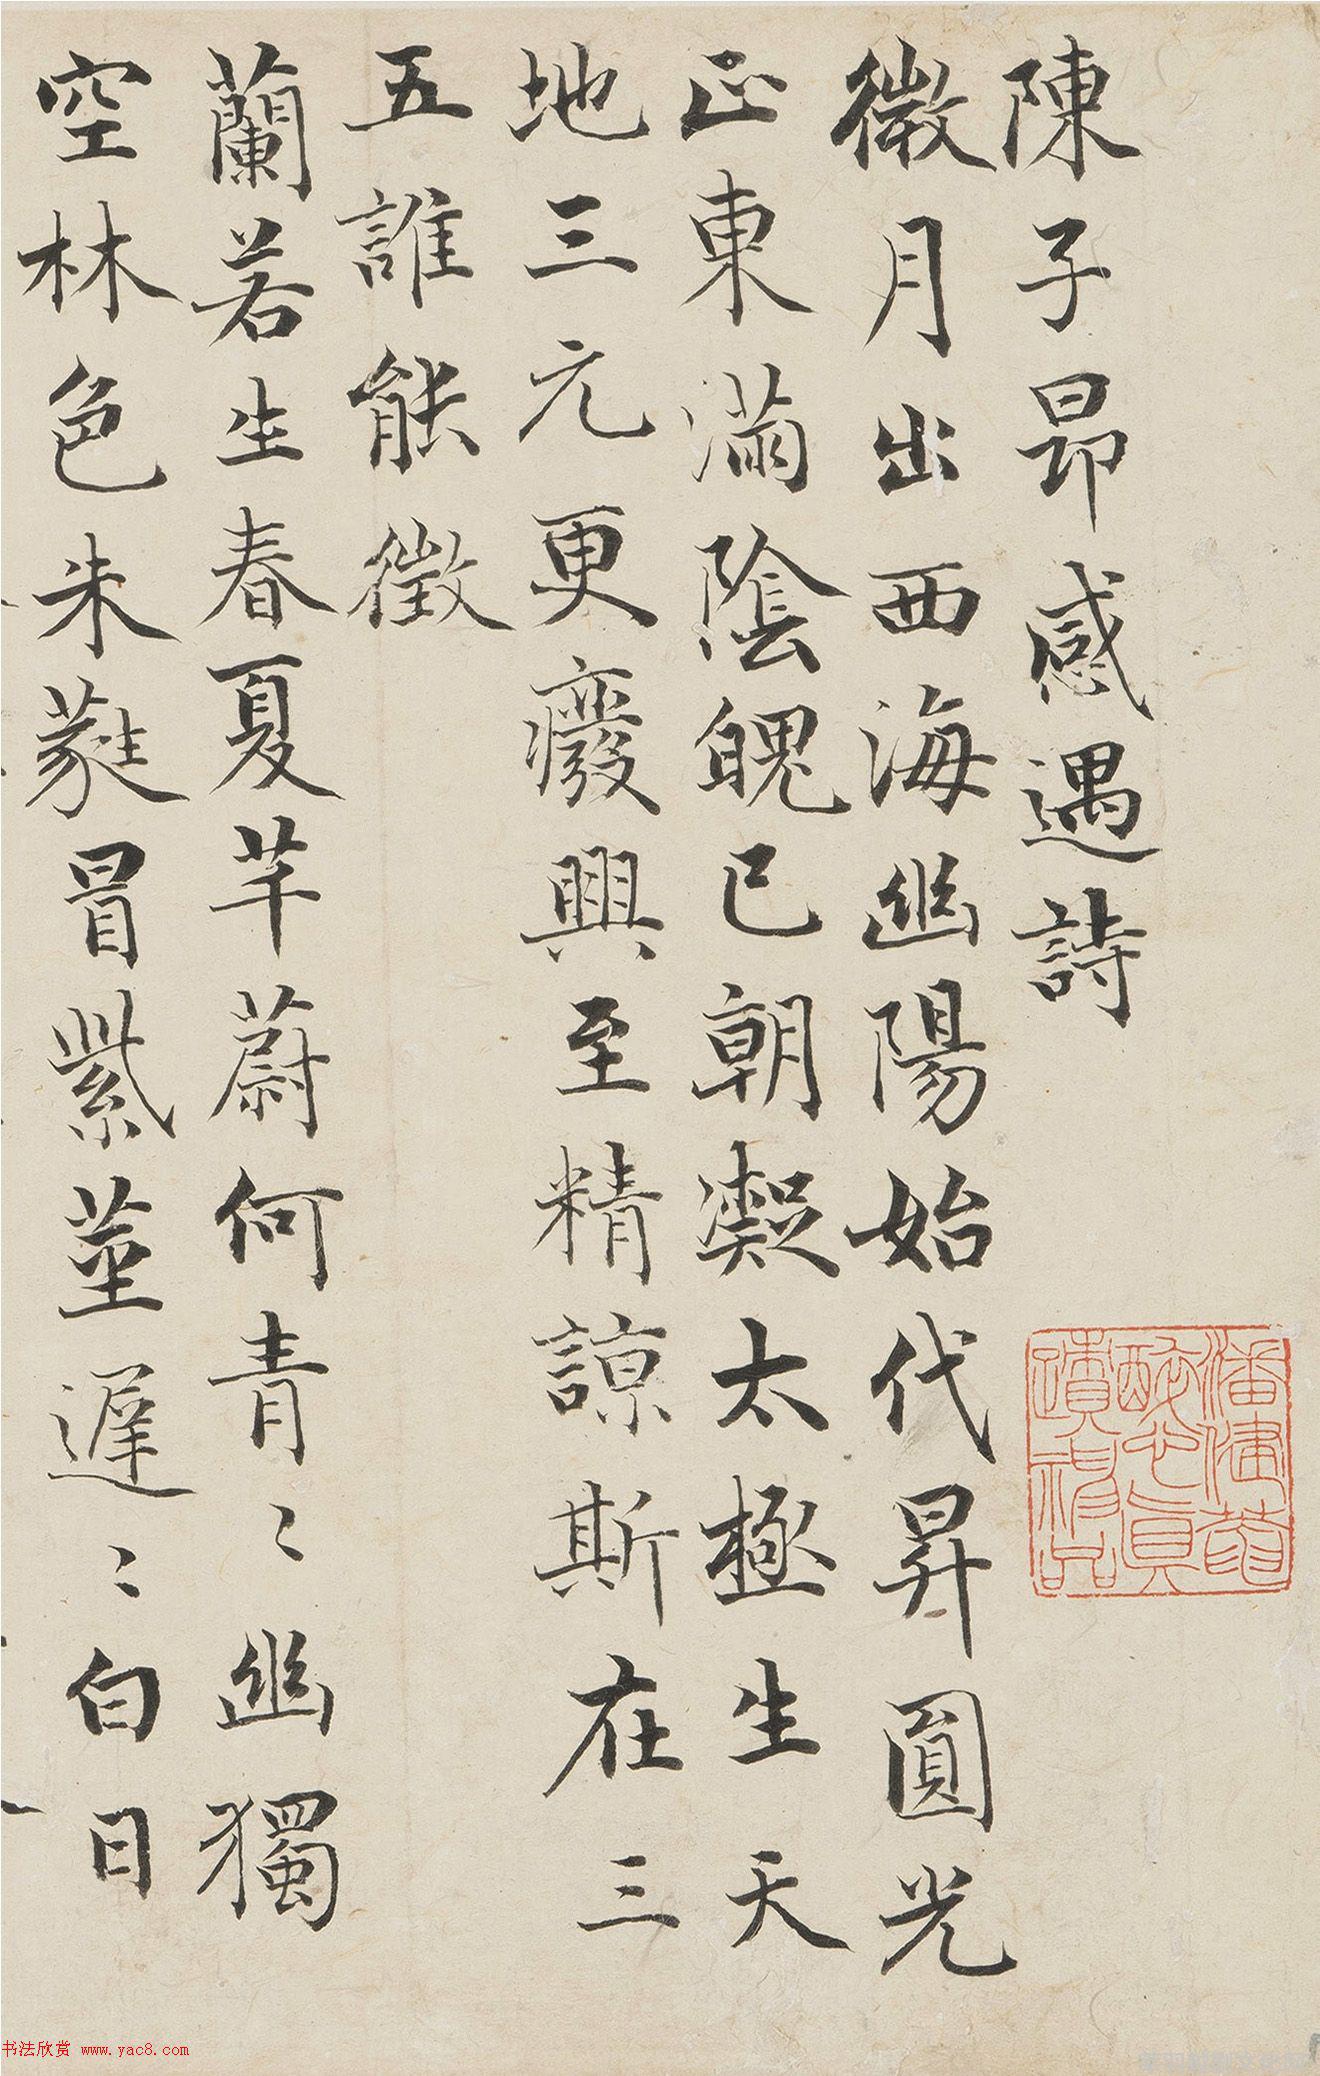 陳子昂感遇詩
微月出西海幽陽始代昇圓光
正東滿陰魄已朝凝太極生天
地三元更廢興至精諒斯在三
五誰能徵
蘭若生春夏芊蔚何青〻幽獨
空林色朱蕤冒紫莖遲〻白日
書法欣赏 www.yac8.com